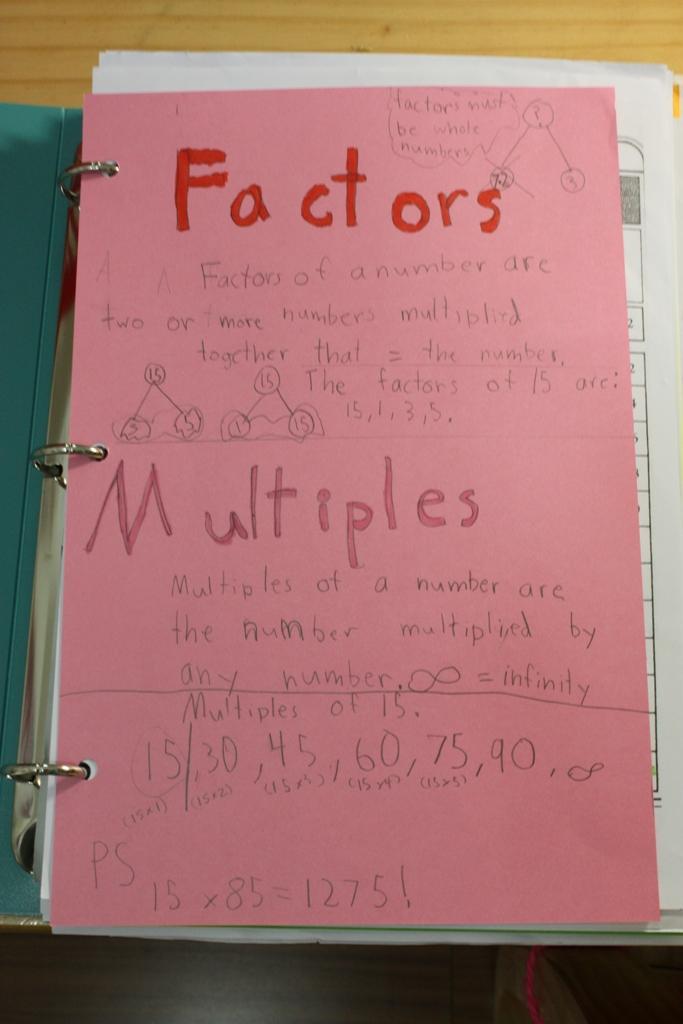 factors must
be whole
numbers
?
7.2
3
Factors
Factors of a number are
two or more numbers multiplied
together that = the number.
15
3
5
15
1
15
The factors of 15 are:
15, 1, 3, 5.
Multiples
Multiples of a number are
the number multiplied by
any number. ∞ = infinity
Multiples of 15.
15, 30, 45, 60, 75, 90, ∞
(15x1) (15x2) (15x3) (15x4) (15x5)
PS
15 x 85 = 1275!